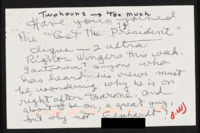 Two hours → too much
Have you joined
the "Get the President"
clique — 2 ultra
Right-wingers this week.
anyone who
has heard his views must
be wondering why he is on
right after Tyrone. And
a great guy,
but why not Gephardt?